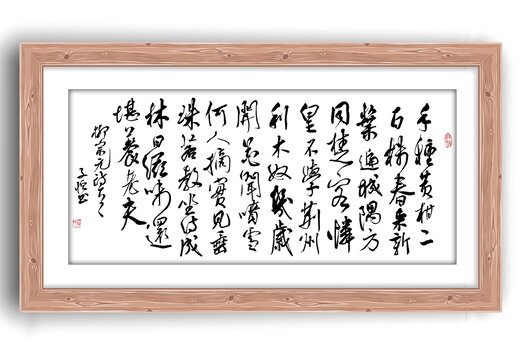 手種黃柑二
百株春來新
葉遍城隅方
同楚客憐
皇不學荊州
利木奴幾歲
開花聞噴雪
何人摘實見垂
珠若教坐待成
林日滋味還
堪養老夫
柳宗元詩